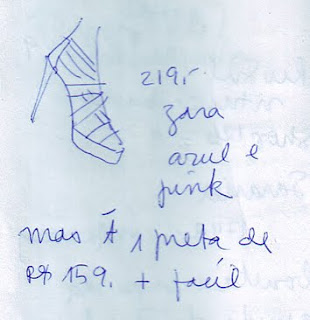 219,-
zara
azul e
pink
mas
1 preta de
R$ 159. + facil